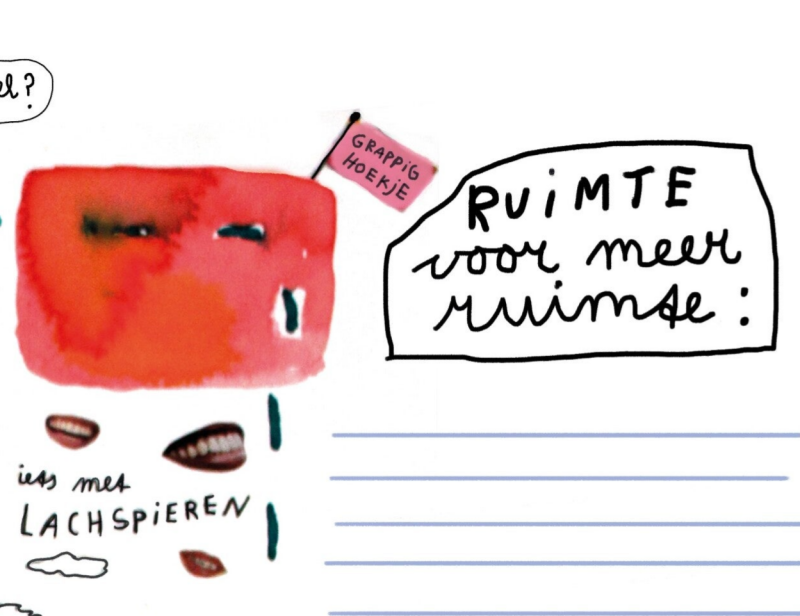 GRAPPiG
HOEKjE
RUiMTE
voor meer
ruimte:
iets met
LACHSPiEREN